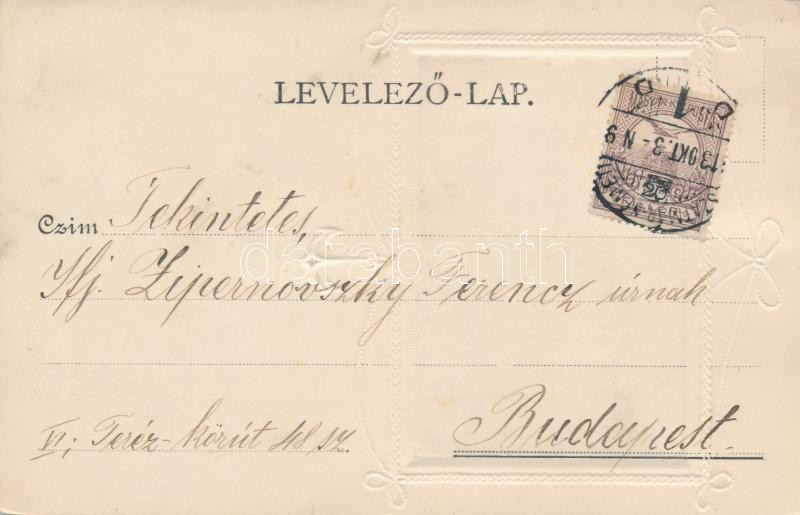 LEVELEZŐ-LAP.
Czim Tekintetes,
Ifj. Zipernovszky Ferencz úrnak
VI; Teréz-körút 48 sz.
Budapest.
darabanth
1
913 OKT. 3 - N 9
20